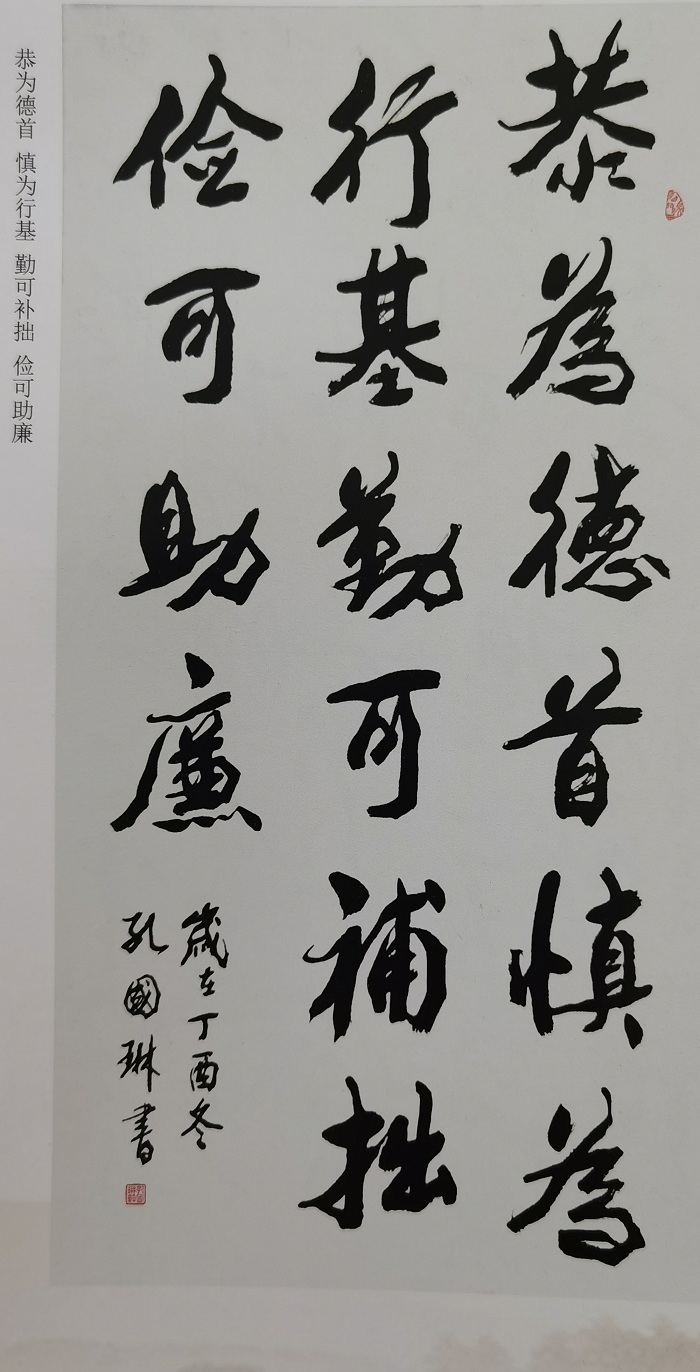 恭為德首慎為
行基勤可補拙
俭可助廉
歲在丁酉冬
孔國琳書
恭为德首 慎为行基 勤可补拙 俭可助廉